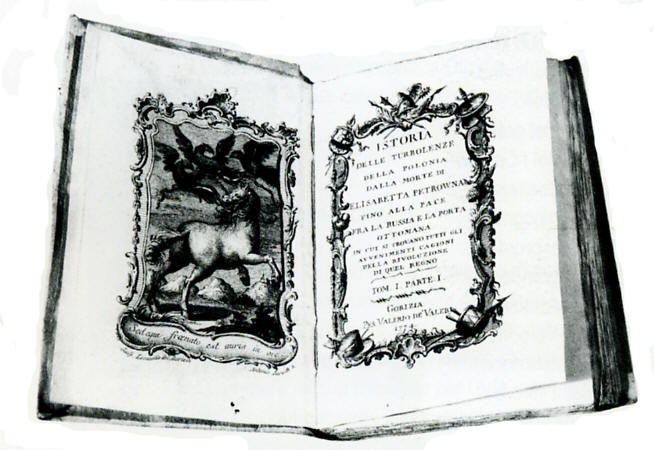 Sed equi frœnato est auris in ore
ISTORIA
DELLE TURBOLENZE
DELLA POLONIA
DALLA MORTE DI
ELISABETTA PETROWNA
FINO ALLA PACE
FRA LA RUSSIA E LA PORTA
OTTOMANA
IN CUI SI TROVANO TUTTI GLI
AVVENIMENTI CAGIONI
DELLA RIVOLUZIONE
DI QUEL REGNO
TOM. I. PARTE I.
GORIZIA
PER VALERIO DE' VALERJ
1774.